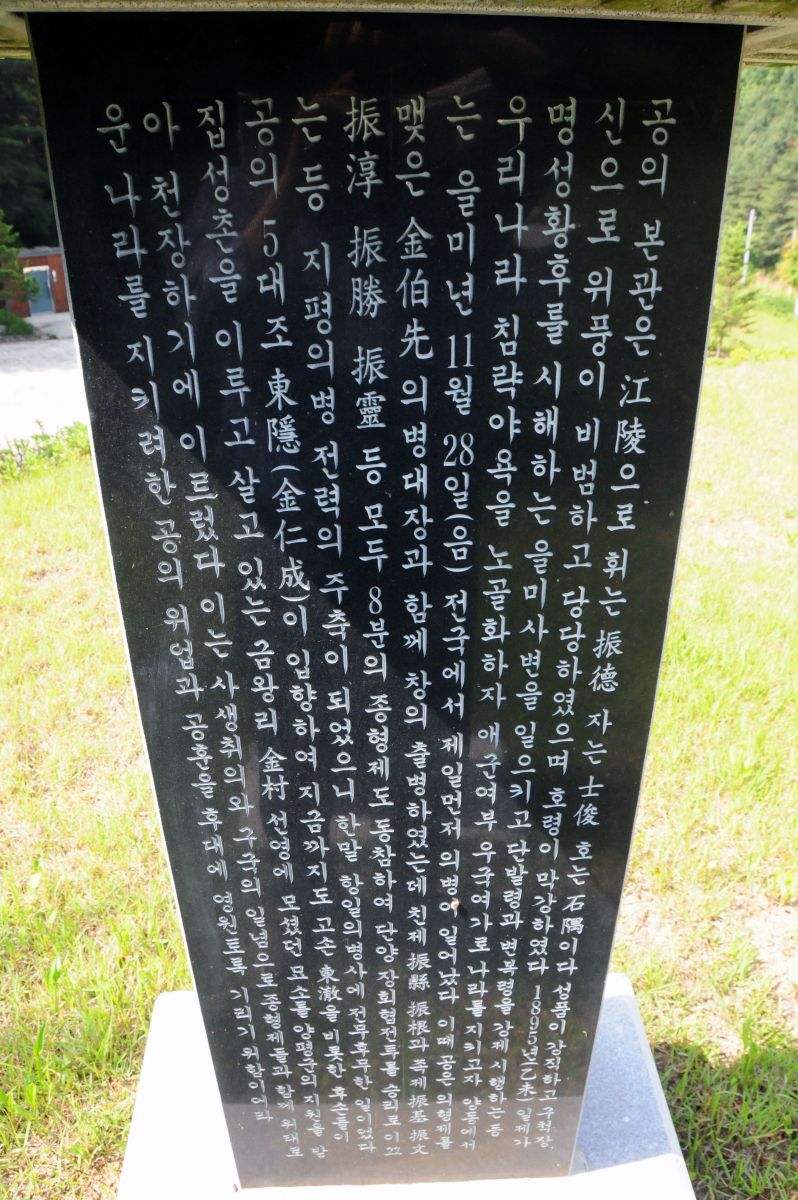 공의 본관은 江陵으로 휘는 振德 자는 士俊 호는 石隅이다 성품이 강직하고 구척장
신으로 위풍이 비범하고 당당하였으며 호령이 막강하였다 1895년(乙未) 일제가
명성황후를 시해하는 을미사변을 일으키고 단발령과 변복령을 강제 시행하는 등
우리나라 침략야욕을 노골화하자 애군여부 우국여가로 나라를 지키고자 양동에서
는 을미년 11월 28일(음) 전국에서 제일먼저 의병이 일어났다 이때 공은 의형제를
맺은 金伯先 의병대장과 함께 창의 출병하였는데 친제 振縣 振根과 족제 振基 振文
振淳 振勝 振靈 등 모두 8분의 종형제도 동참하여 단양 장회협전투를 승리로 이끄
는 등 지평의병 전력의 주축이 되었으니 한말 항일의병사에 전무후무한 일이었다
공의 5대조 東隱(金仁成)이 입향하여 지금까지도 고손 東澈을 비롯한 후손들이
집성촌을 이루고 살고 있는 금왕리 金村 선영에 모셨던 묘소를 양평군의 지원을 받
아 천장하기에 이르렀다 이는 사생취의와 구국의 일념으로 종형제들과 함께 위태로
운 나라를 지키려한 공의 위업과 공훈을 후대에 영원토록 기리기 위함이어라